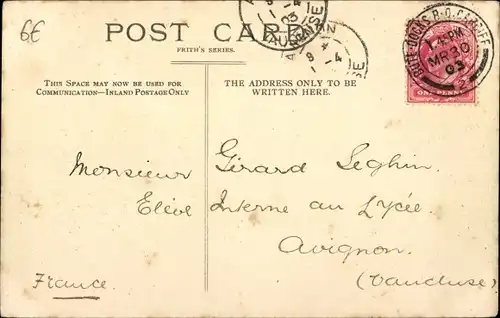 6€
POST CARD
FRITH'S SERIES.
THIS SPACE MAY NOW BE USED FOR
COMMUNICATION—INLAND POSTAGE ONLY
THE ADDRESS ONLY TO BE
WRITTEN HERE.
BUTE-DOCKS B.O. CARDIFF
MR 30
03
ONE PENNY
Monsieur Gérard Seghin
Elève Interne au Lycée
Avignon
France (Vaucluse)